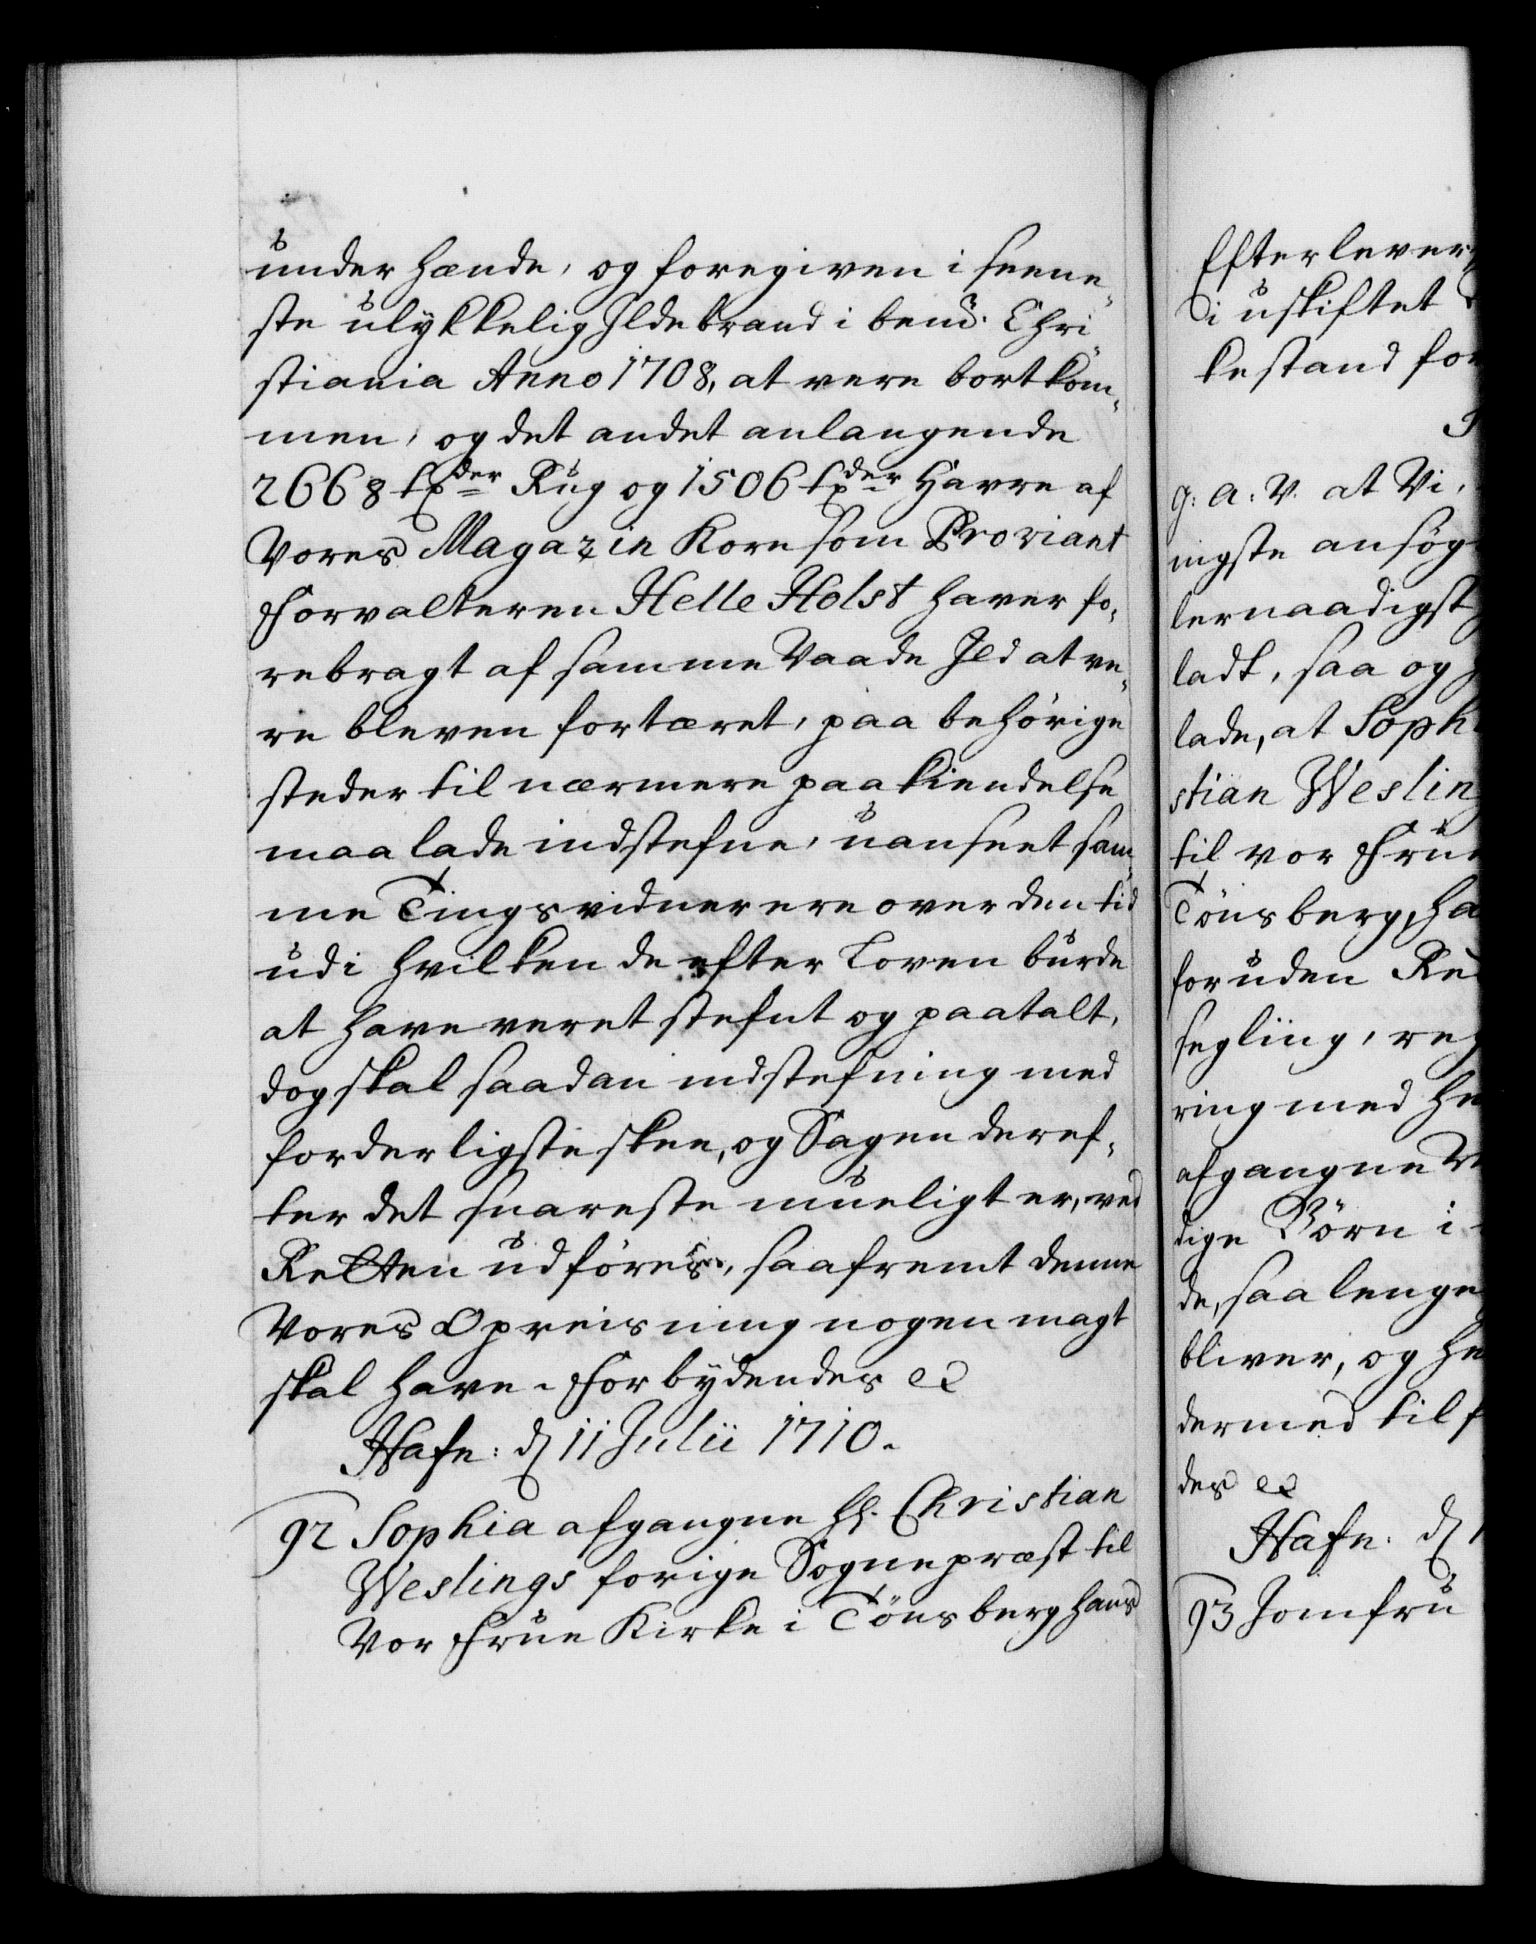 under hænde, og foregiven i seene„
ste ulykkelig Ildebrand i bemd. Chri„
stiania Anno 1708, at vere bortkom„
men, og det andet anlangende
2668 tder Rug og 1506 tder Havre af
Vores Magazin Korn som Proviant
Forvalteren Helle Holst haver fo„
rebragt af samme Vaade Ild at ve„
re bleven fortæret, paa behörige
steder til nærmere paakiendelse
maa lade indstefne, uanseet sam„
me Tingsvidner ere over den tid
udi hvilken de efter Loven burde
at have veret stefnt og paatalt,
dog skal saadan indstefning med
forderligste skee, og Sagen deref„
ter det snareste mueligt er, ved
Retten udföres, saafremt denne
Vores Opreisning nogen magt
skal have. Forbydendes &
Hafn: d 11 Julii 1710.
92 Sophia afgangne Hr. Christian
Weslings forige Sognepræst til
Vor Frue Kirke i Tönsberg hans
Efterlever
i uskiftet
kestand for
g: a: V. at Vi,
nigste ansög
lernaadigst
ladt, saa og
lade, at Soph
stian Weslin
til vor Frue
Tönsberg, ha
foruden
segling, reg
ring med
afgangne
dige Börn i
de, saa lenge
bliver, og
dermed til
des &
Hafn. d
93 Jomfru